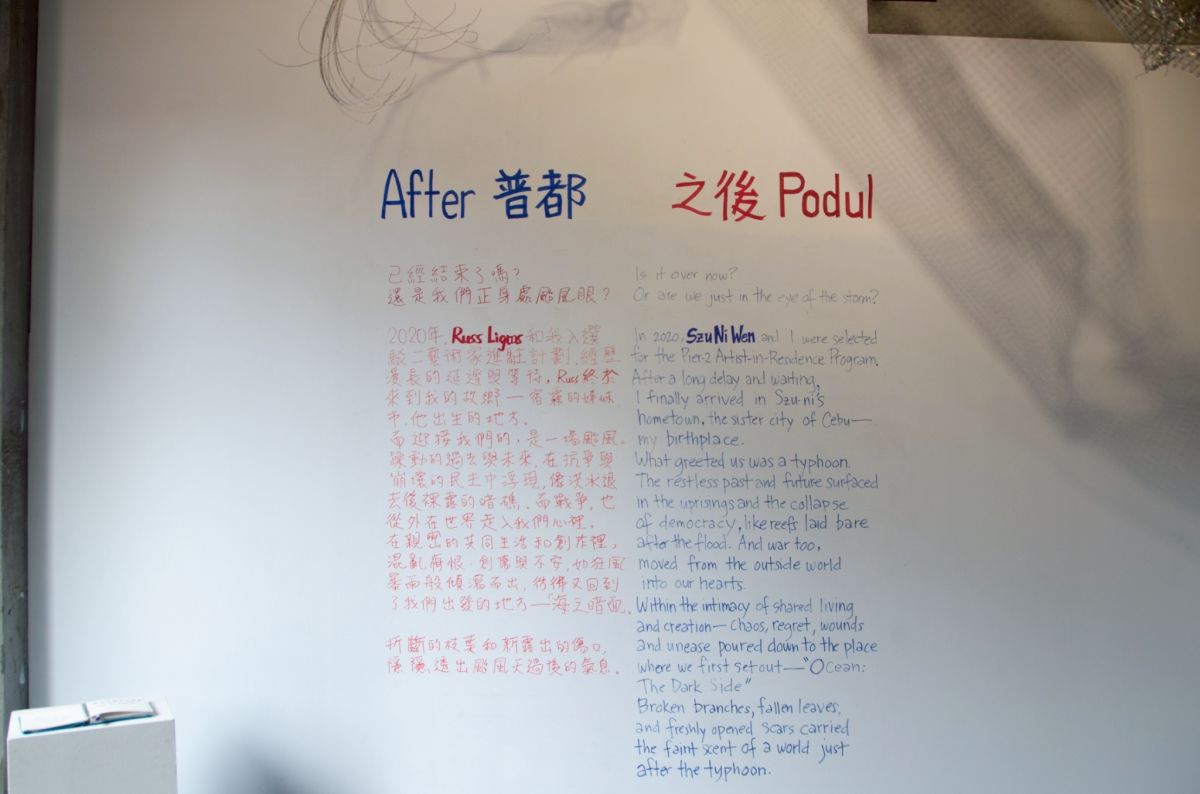 After 普都 之後 Podul
已經結束了嗎?
還是我們正身處颱風眼?
2020年, Russ Ligtas 和我入選
駁二藝術家進駐計劃, 經歷
漫長的延遲與等待, Russ終於
來到我的故鄉—宿霧的姊妹
市, 他出生的地方.
而迎接我們的, 是一場颱風.
躁動的過去與未來, 在抗爭與
崩壞的民主中浮現, 像洪水退
去後裸露的暗礁. 而戰爭, 也
從外在世界走入我們心裡.
在親密的共同生活和創作裡,
混亂、悔恨、創傷與不安, 如狂風
暴雨般傾瀉而出, 彷彿又回到
了我們出發的地方—「海之暗面」.
折斷的枝葉和新露出的傷口,
隱隱透出颱風天過後的氣息.
Is it over now?
Or are we just in the eye of the storm?
In 2020, Szu Ni Wen and I were selected
for the Pier-2 Artist-in-Residence Program.
After a long delay and waiting,
I finally arrived in Szu-ni's
hometown, the sister city of Cebu—
my birthplace.
What greeted us was a typhoon.
The restless past and future surfaced
in the uprisings and the collapse
of democracy, like reefs laid bare
after the flood. And war too,
moved from the outside world
into our hearts.
Within the intimacy of shared living
and creation— Chaos, regret, wounds
and unease poured down to the place
where we first set out—"Ocean:
The Dark Side"
Broken branches, fallen leaves,
and freshly opened scars carried
the faint scent of a world just
after the typhoon.